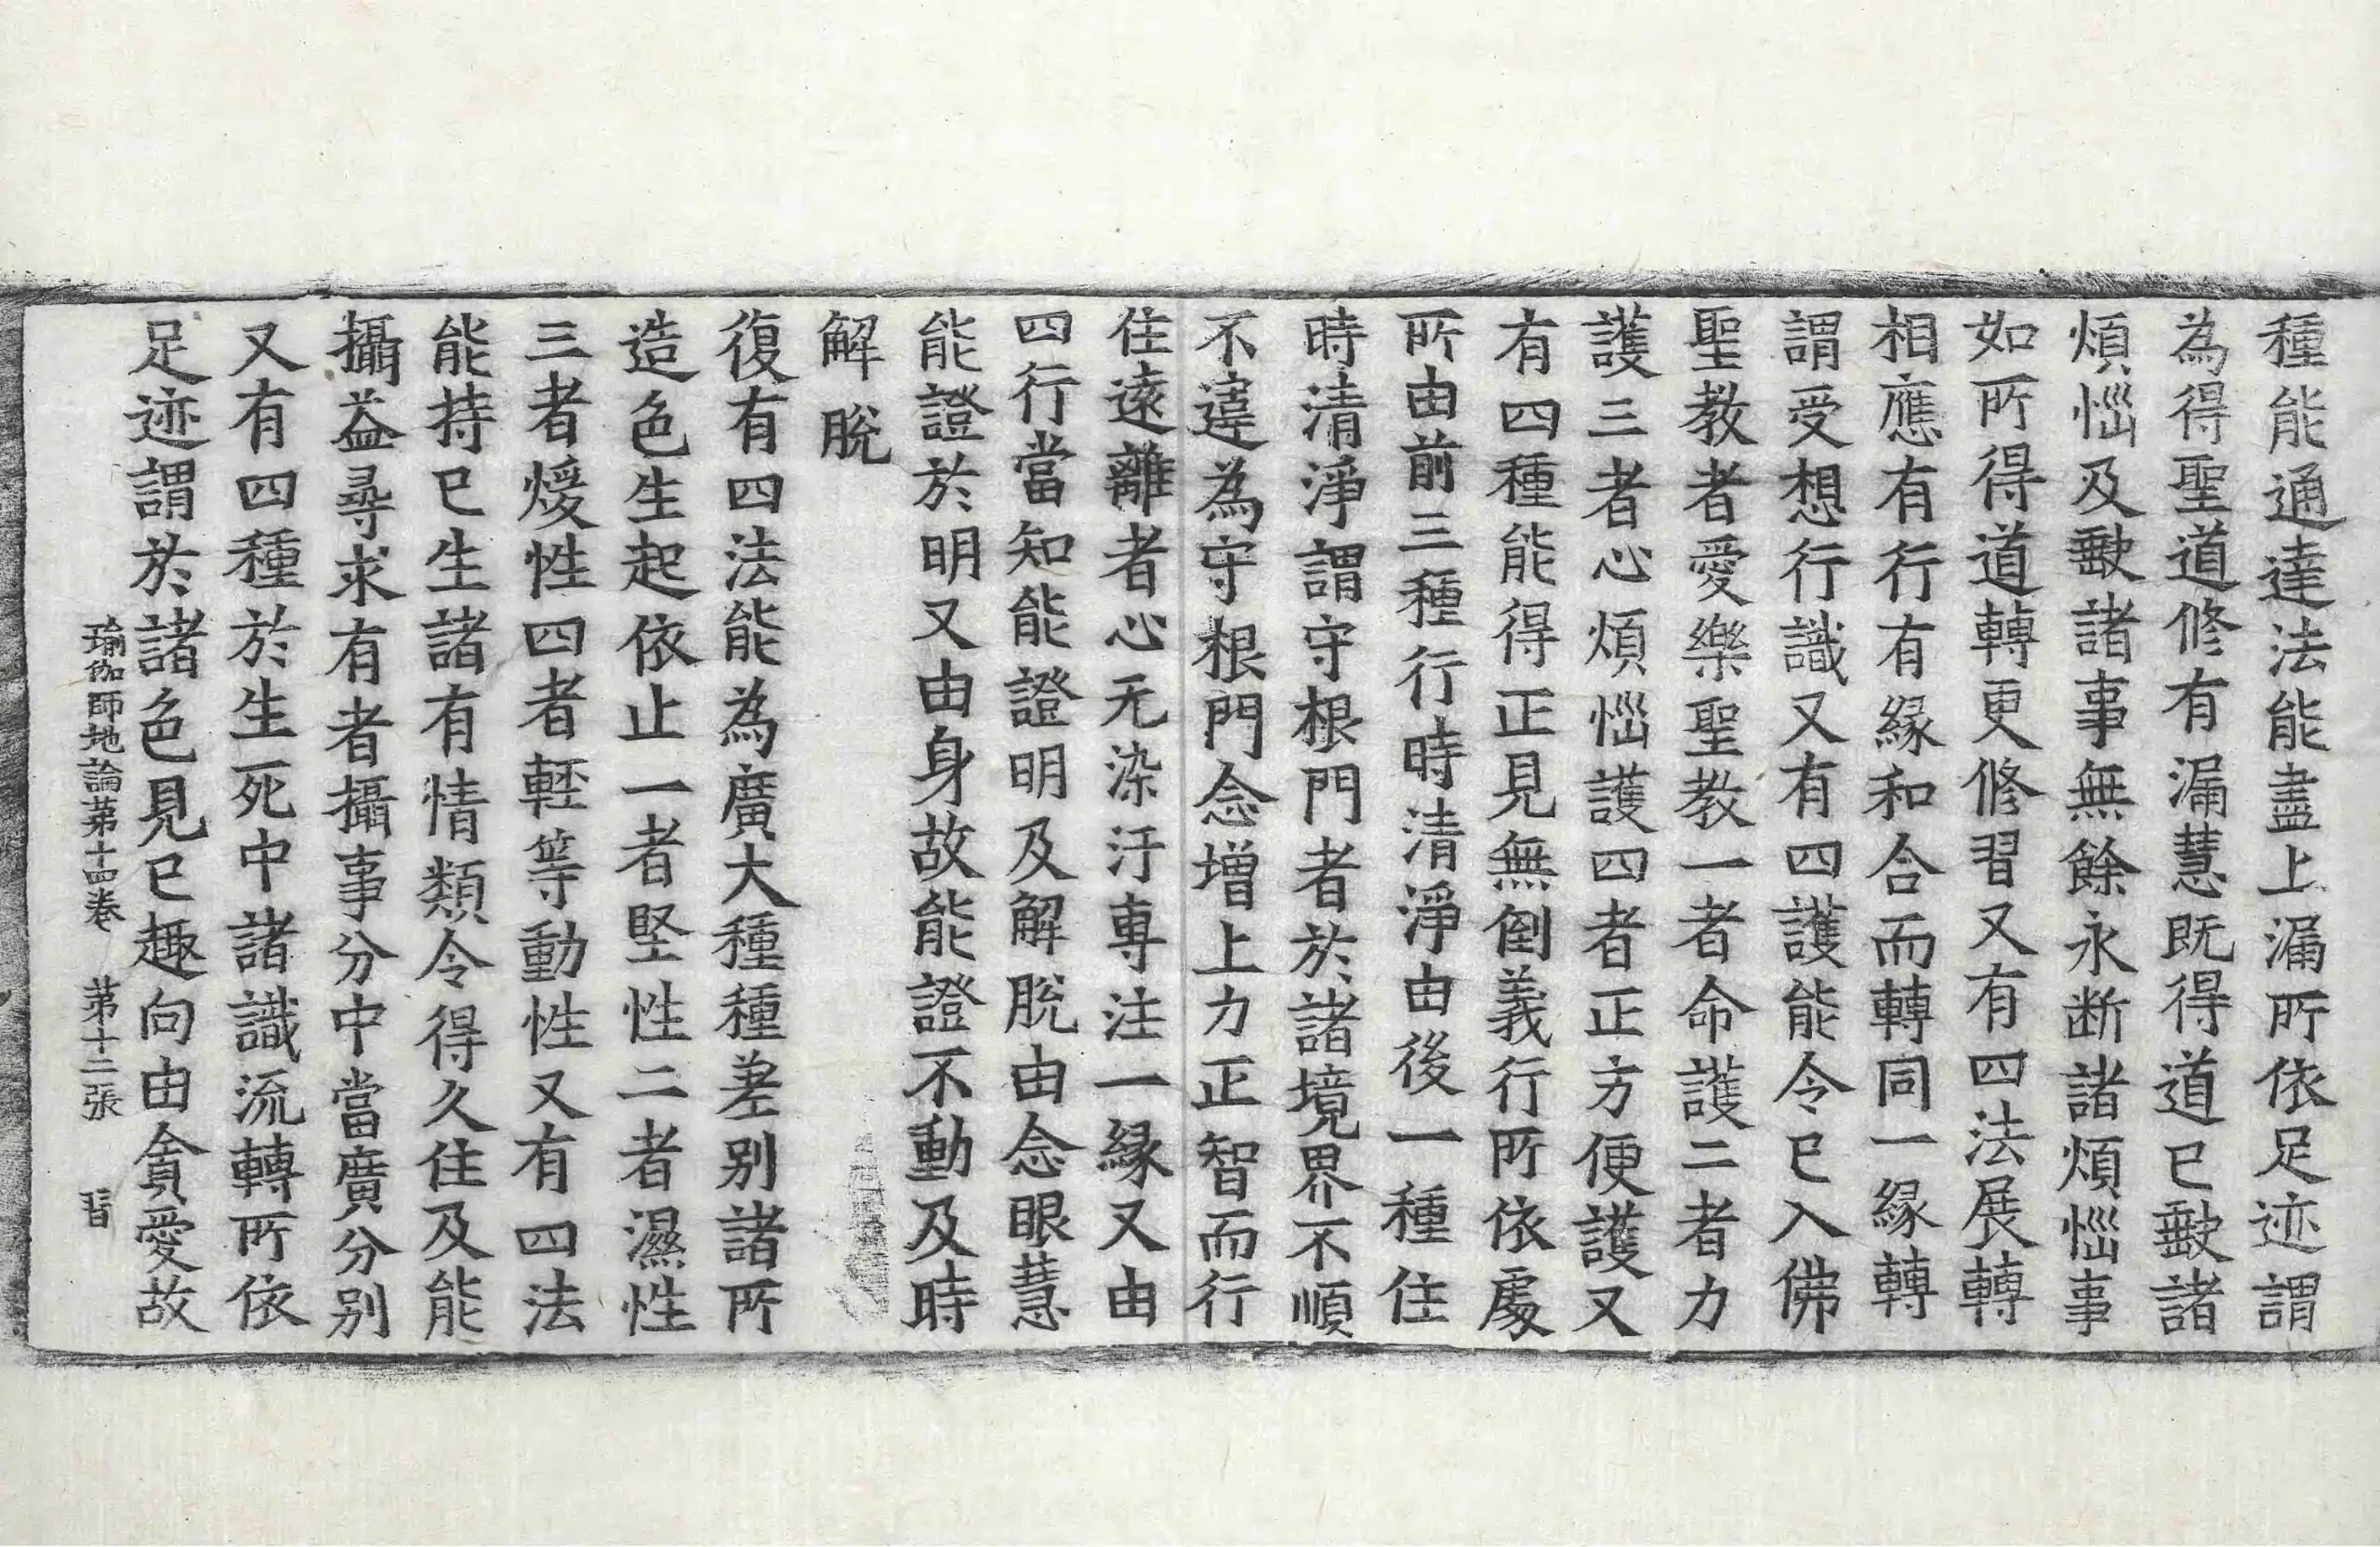 種能通達法能盡上漏所依足迹謂
為得聖道修有漏慧既得道已斷諸
煩惱及斷諸事無餘永断諸煩惱事
如所得道轉更修習又有四法展轉
相應有行有緣和合而轉同一緣轉
謂受想行識又有四護能令已入佛
聖教者愛樂聖教一者命護二者力
護三者心煩惱護四者正方便護又
有四種能得正見無倒義行所依處
所由前三種行時清淨由後一種住
時清淨謂守根門者於諸境界不順
不違為守根門念增上力正智而行
住遠離者心无染汙專注一緣又由
四行當知能證明及解脫由念眼慧
能證於明又由身故能證不動及時
解脫
復有四法能為廣大種種差別諸所
造色生起依止一者堅性二者濕性
三者煖性四者輕等動性又有四法
能持已生諸有情類令得久住及能
攝益尋求有者攝事分中當廣分別
又有四種於生死中諸識流轉所依
足迹謂於諸色見已趣向由貪愛故
瑜伽師地論苐十四卷 苐十二張